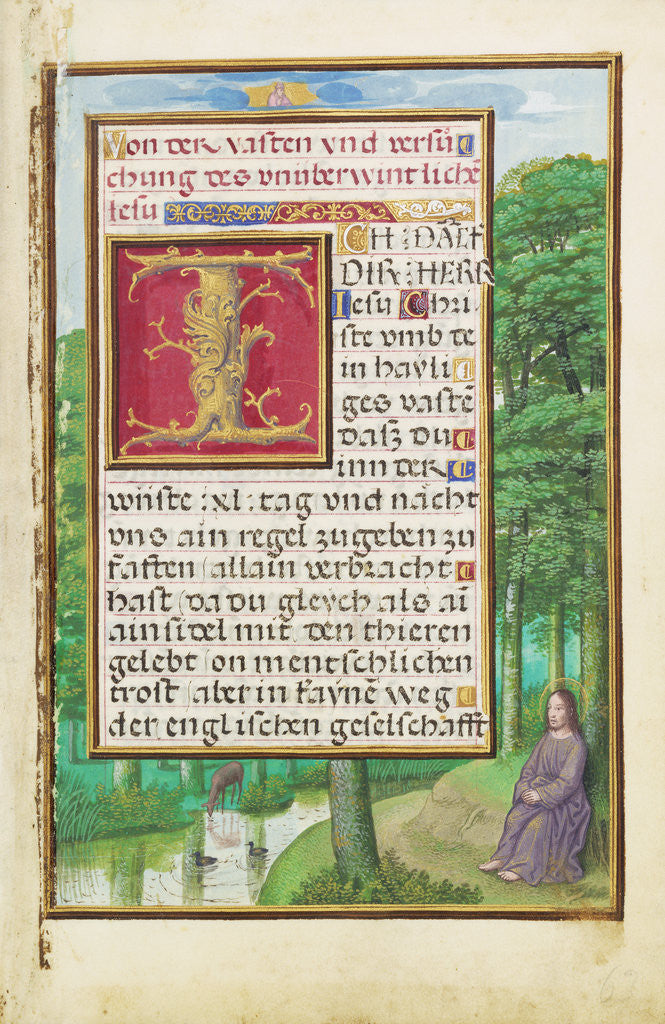 Von der vasten vnd versů
chung des vnüberwintlichē
Iesu
ICH : DAЛCK
DIR : HERR
Iesu Chri
ste vmb de
in hayli
ges vastē
dasz du
inn der
wüste : xl : tag vnd nächt
vns ain regel zugeben zu
fasten / allain verbracht
hast / da du gleych als ai
ainsidel mit den thieren
gelebt / on mentschlichen
trost / aber in kaynē weg
der englischen geselschafft
63